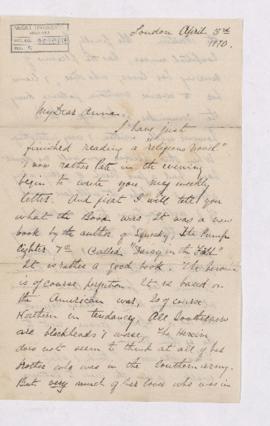 London April 3rd
1870.
My Dear Anna.
I have just
finished reading a "religious novel"
& now rather late in the evening
begin to write you my weekly
letter. And first I will tell you
what the Book was. It was a new
book by the author of Squeeky, The Lamp
lighter &c. Called "Daisy in the Field"
It is rather a good book. The heroine
is of course perfection. It is based on
the American war, & of course
Northern in tendancy. All Southerners
are blackheads & worse. The Heroin
does not seem to think at all of her
brother who was in the Southern army.
But very much of her lover who was in